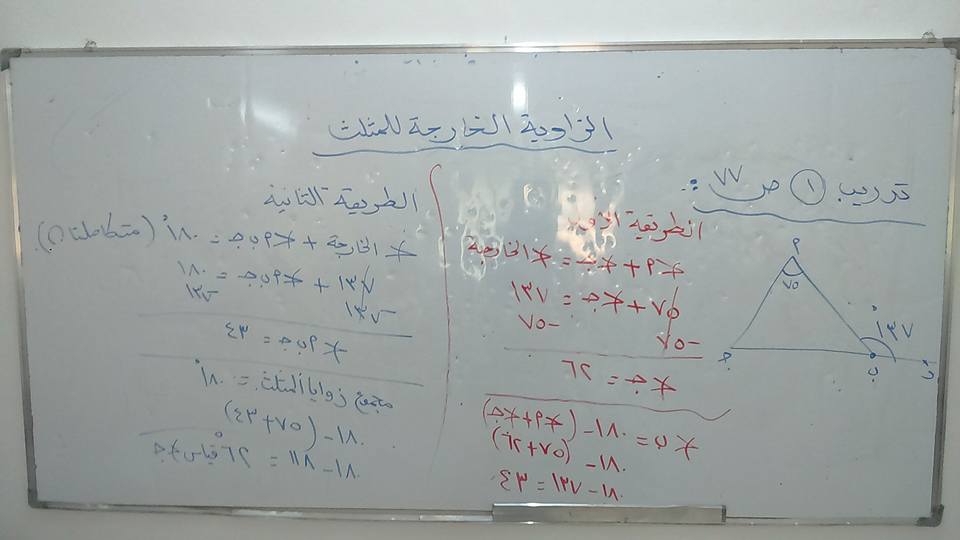 الزاوية الخارجة للمثلث
تدريب ١ ص ٧٧ :
م
٧٥
١٣٧°
ج
ب
د
الطريقة الأولى
∢م + ∢ج = ∢ الخارجة
٧٥ + ∢ج = ١٣٧
-٧٥ -٧٥
∢ج = ٦٢
∢ب = ١٨٠ - (∢م + ∢ج)
١٨٠ - (٧٥ + ٦٢)
١٨٠ - ١٣٧ = ٤٣
الطريقة الثانية
∢ الخارجة + ∢م ب ج = ١٨٠° (متكاملتان)
١٣٧ + ∢م ب ج = ١٨٠
-١٣٧ -١٣٧
∢م ب ج = ٤٣
مجموع زوايا المثلث = ١٨٠°
١٨٠ - (٧٥ + ٤٣)
١٨٠ - ١١٨ = ٦٢° قياس ∢ج